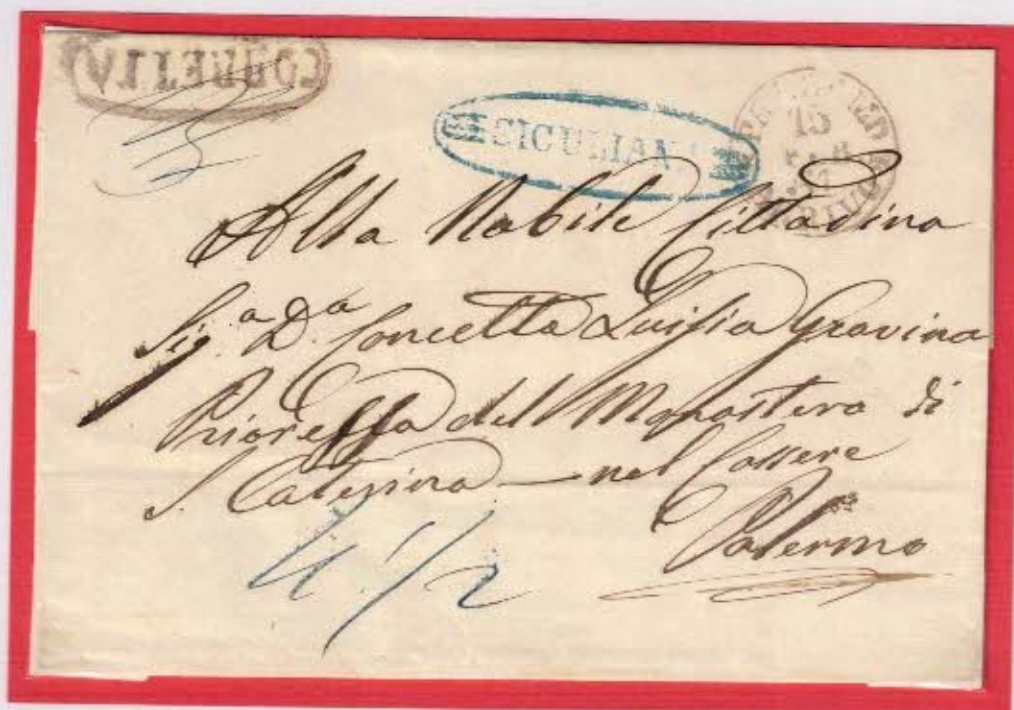 CORRETTA
SICULIAN
15
FEB
ARRIVO
Alla Nobile Cittadina
Sig.a D.a Concetta Luisia Gravina
Prioressa del Monastero di
S. Caterina — nel Cassere
Palermo
4 1/2